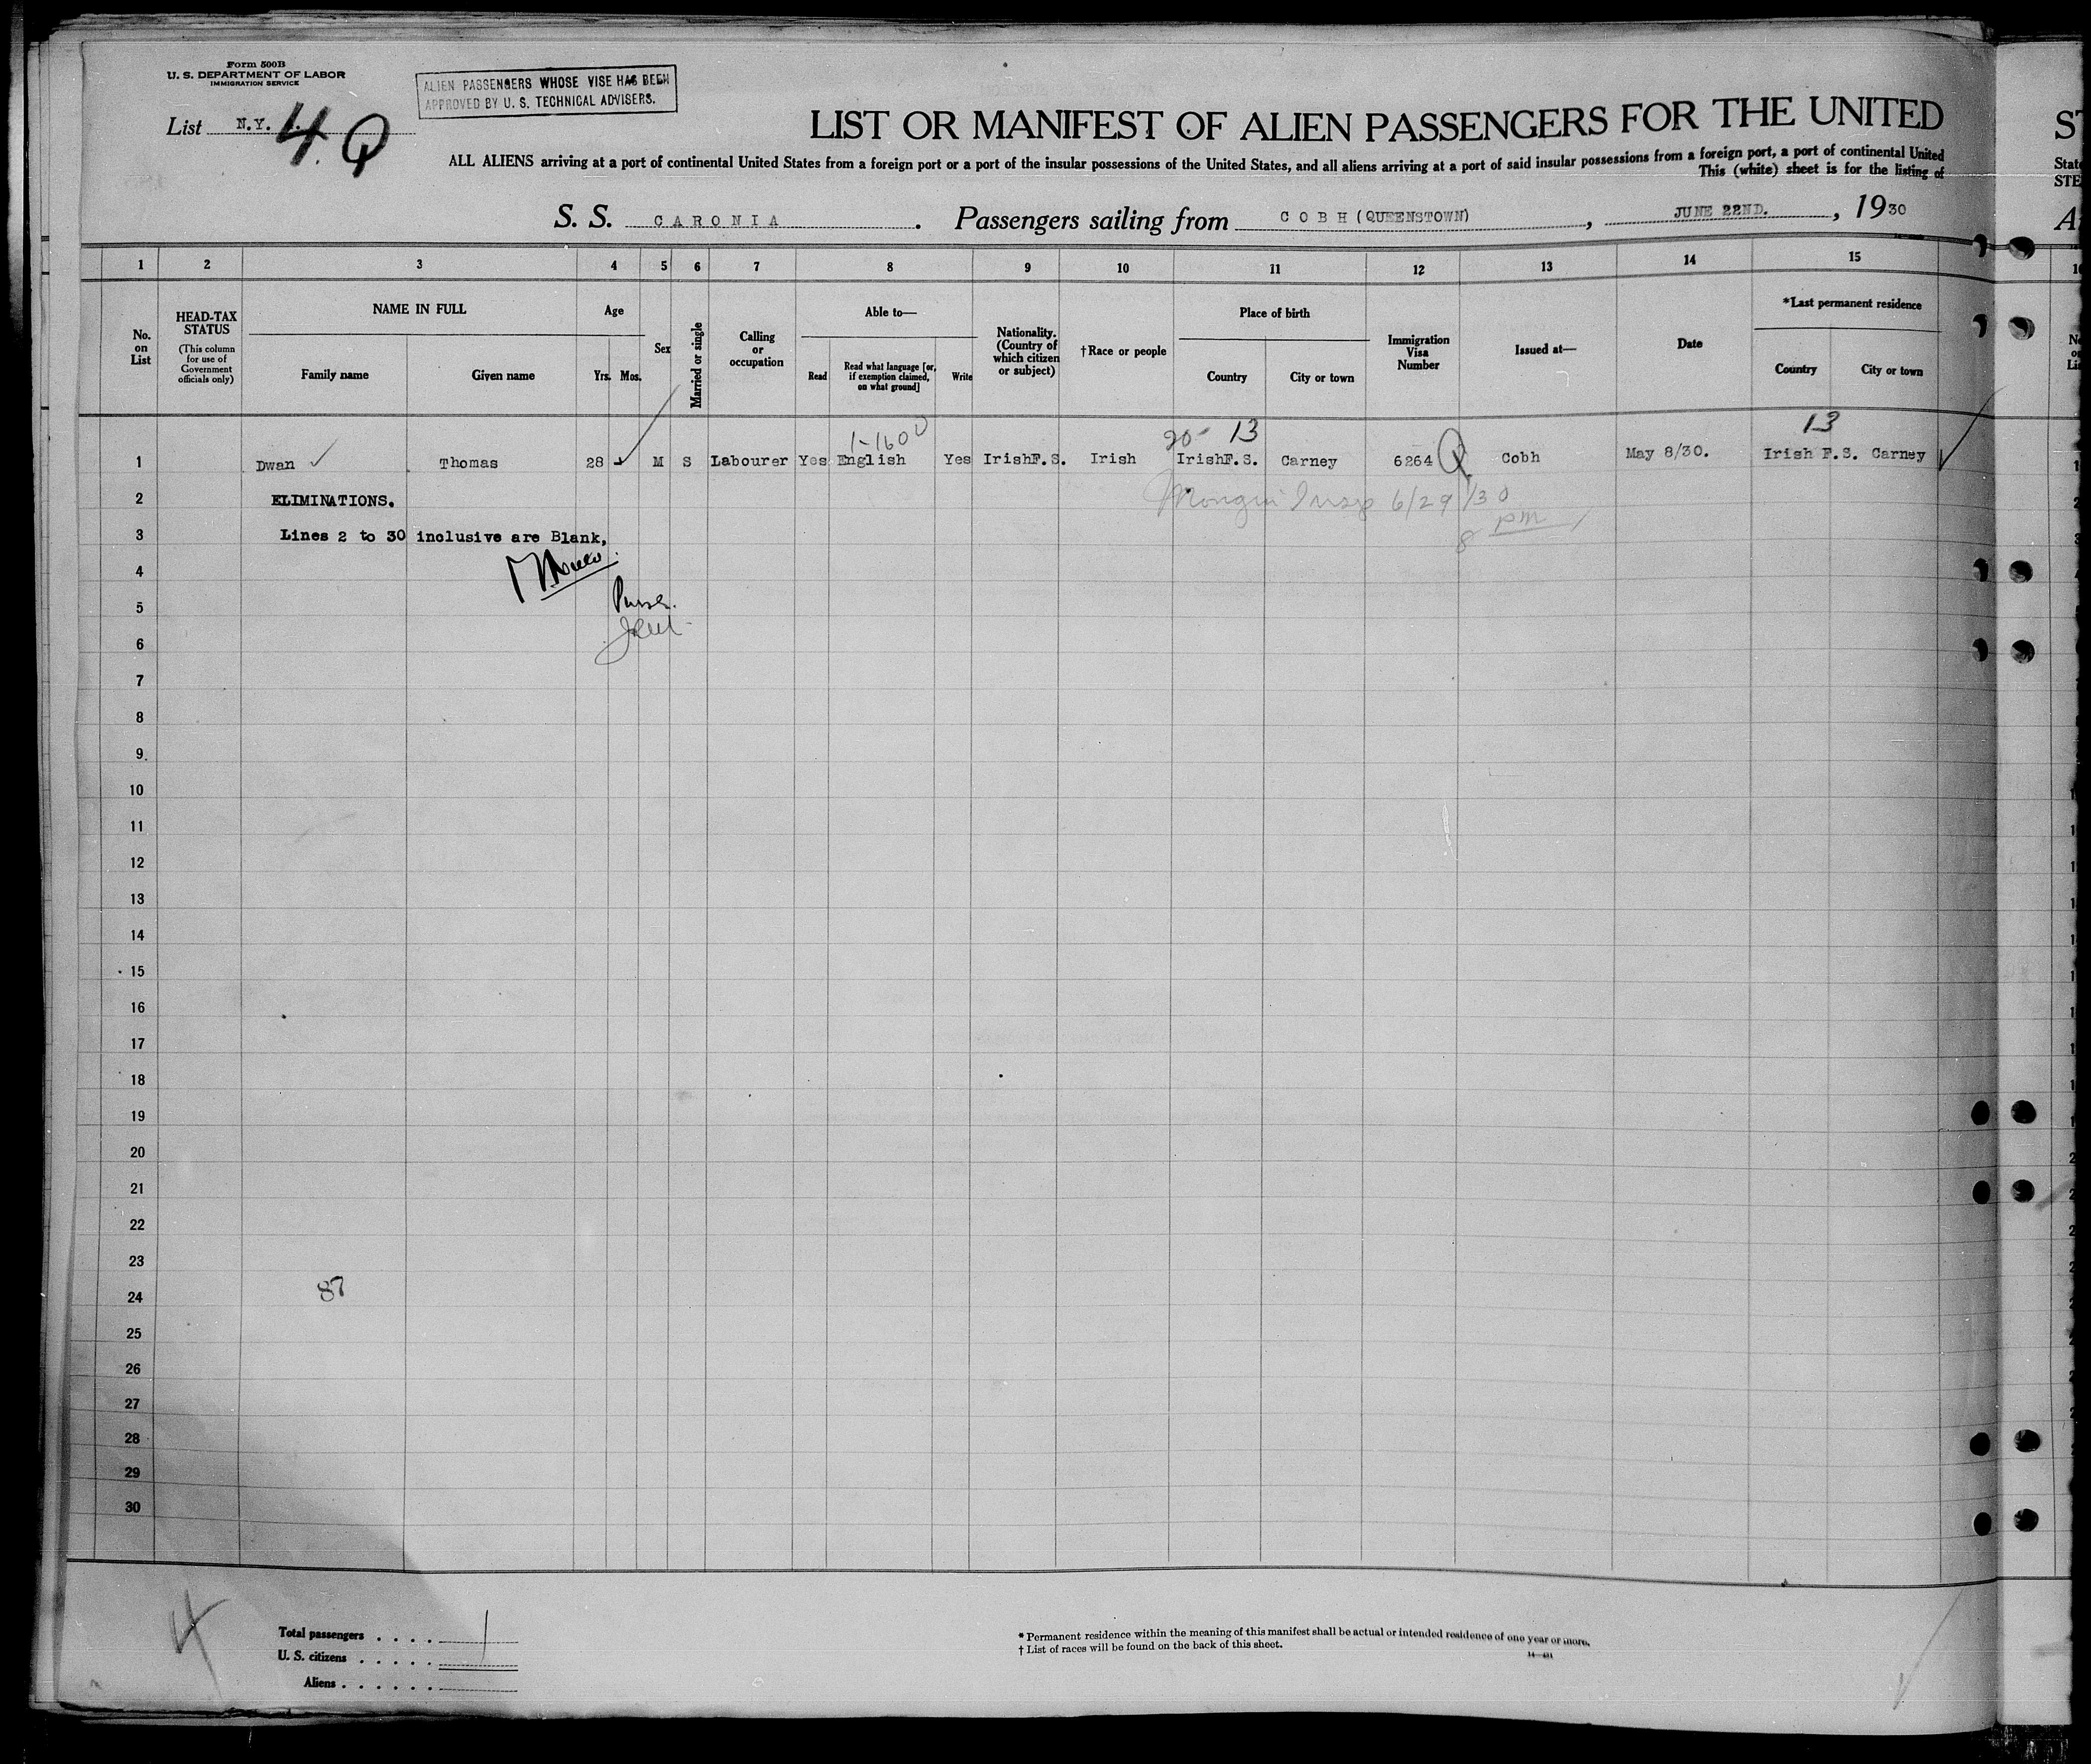 Form 500B
U. S. DEPARTMENT OF LABOR
IMMIGRATION SERVICE
ALIEN PASSENGERS WHOSE VISE HAS BEEN
APPROVED BY U. S. TECHNICAL ADVISERS.
List N.Y. 4. Q
LIST OR MANIFEST OF ALIEN PASSENGERS FOR THE UNITED
ALL ALIENS arriving at a port of continental United States from a foreign port or a port of the insular possessions of the United States, and all aliens arriving at a port of said insular possessions from a foreign port, a port of continental United
This (white) sheet is for the listing of
S. S. CARONIA. Passengers sailing from COBH (QUEENSTOWN), JUNE 22ND., 1930
1 2 3 4 5 6 7 8 9 10 11 12 13 14 15
No. on List
HEAD-TAX STATUS
(This column for use of Government officials only)
NAME IN FULL
Family name
Given name
Age
Yrs. Mos.
Sex
Married or single
Calling or occupation
Able to—
Read
Read what language [or, if exemption claimed, on what ground]
Write
Nationality. (Country of which citizen or subject)
†Race or people
Place of birth
Country
City or town
Immigration Visa Number
Issued at—
Date
*Last permanent residence
Country
City or town
1-1600 20- 13 13
1 Dwan ✓ Thomas 28 M S Labourer Yes English Yes IrishF.S. Irish IrishF.S. Carney 6264 Q Cobh May 8/30. Irish F.S. Carney
2 ELIMINATIONS. Insp 6/29/30
8 pm
3 Lines 2 to 30 inclusive are Blank,
4
5 Purser.
6
7
8
9
10
11
12
13
14
15
16
17
18
19
20
21
22
23
24 87
25
26
27
28
29
30
4
Total passengers . . . . 1
U. S. citizens . . . . .
Aliens . . . . . .
* Permanent residence within the meaning of this manifest shall be actual or intended residence of one year or more.
† List of races will be found on the back of this sheet.